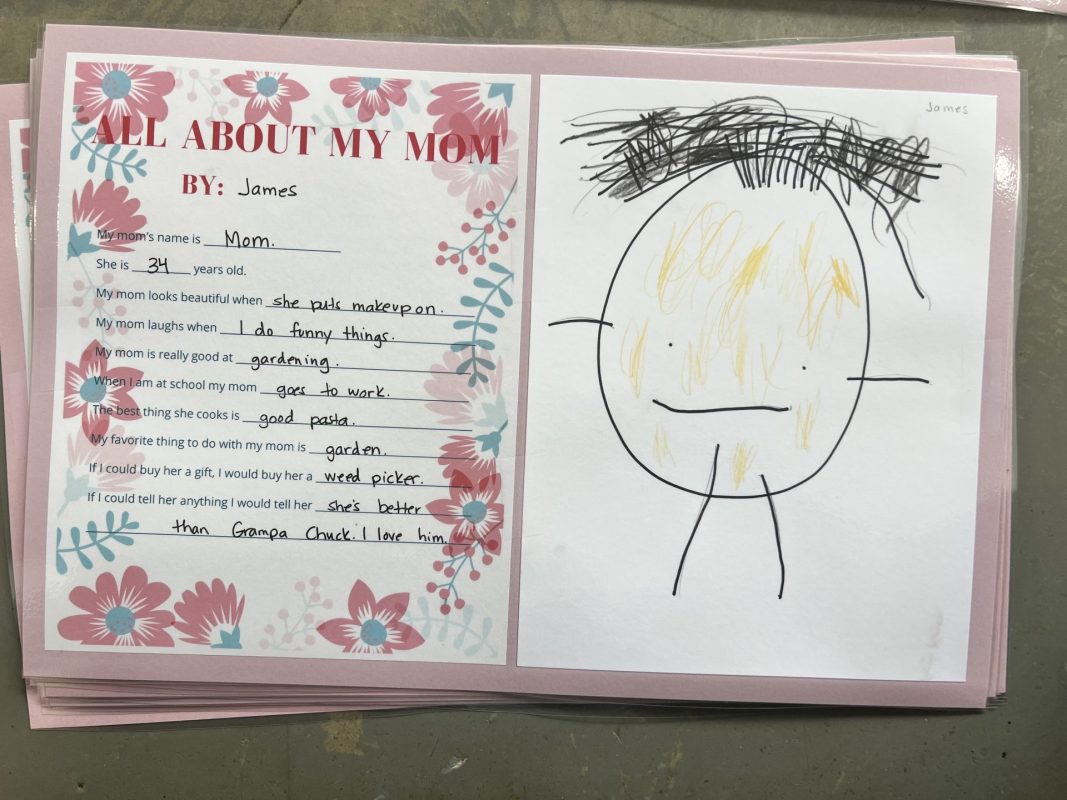 ALL ABOUT MY MOM
BY: James
My mom's name is Mom.
She is 34 years old.
My mom looks beautiful when she puts makeup on.
My mom laughs when I do funny things.
My mom is really good at gardening.
When I am at school my mom goes to work.
The best thing she cooks is good pasta.
My favorite thing to do with my mom is garden.
If I could buy her a gift, I would buy her a weed picker.
If I could tell her anything I would tell her she's better
than Grampa Chuck. I love him.
James